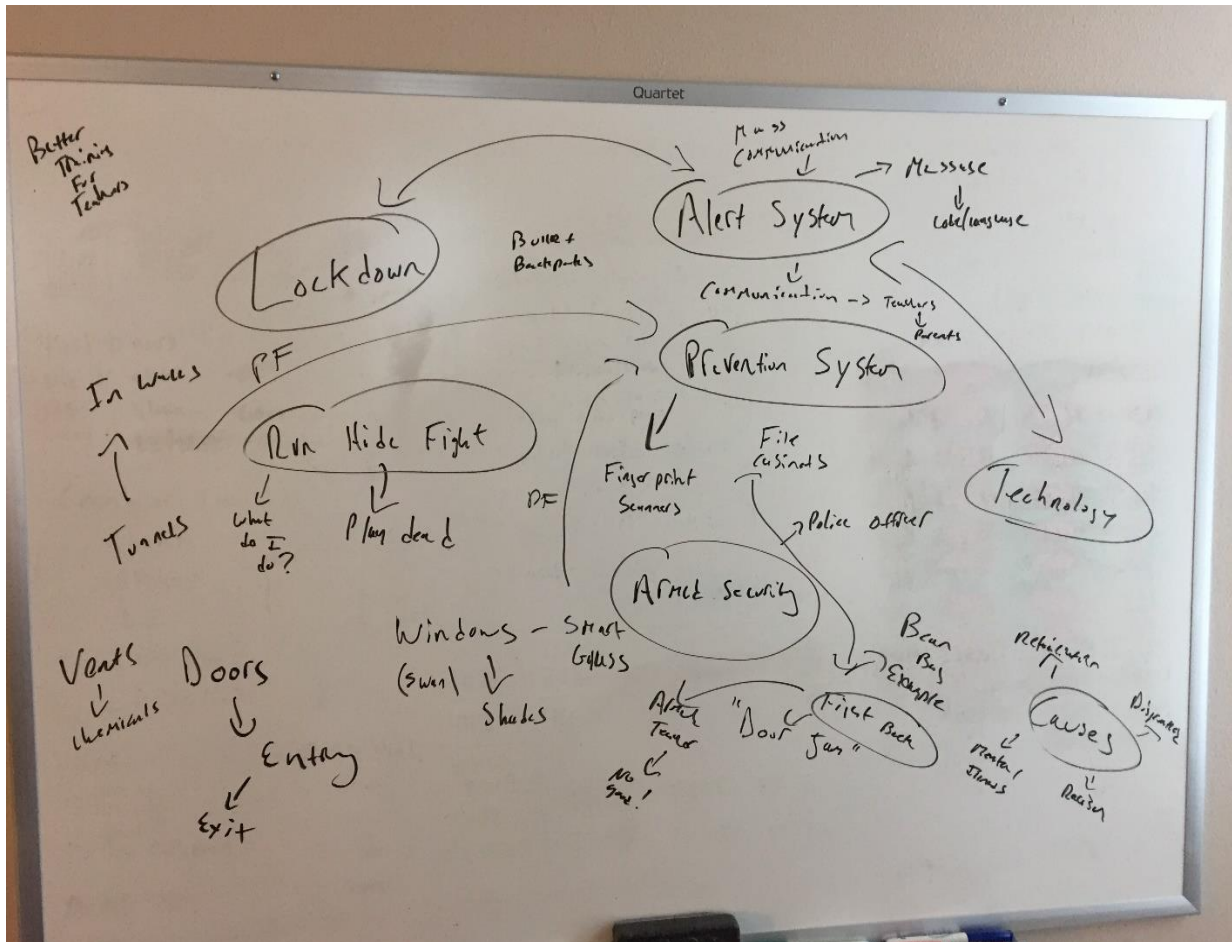 Quartet
Better
Training
For
Teachers
Mass
Communication
Alert System
Message
Code/language
Lockdown
Bullet
Backpacks
Communication → Teachers
Parents
Prevention System
In walls
PF
Run Hide Fight
Tunnels
What
do I
do?
Play dead
PF
Fingerprint
Scanners
File
Cabinets
Technology
Police officer
Armed Security
Windows - Smart
Glass
Shades
Vents
Chemicals
Doors
Entry
Exit
Bean
Bag
Example
Fight Back
"Door Jam"
Armed
Teacher
No
Causes
Mental
Illness
Racism